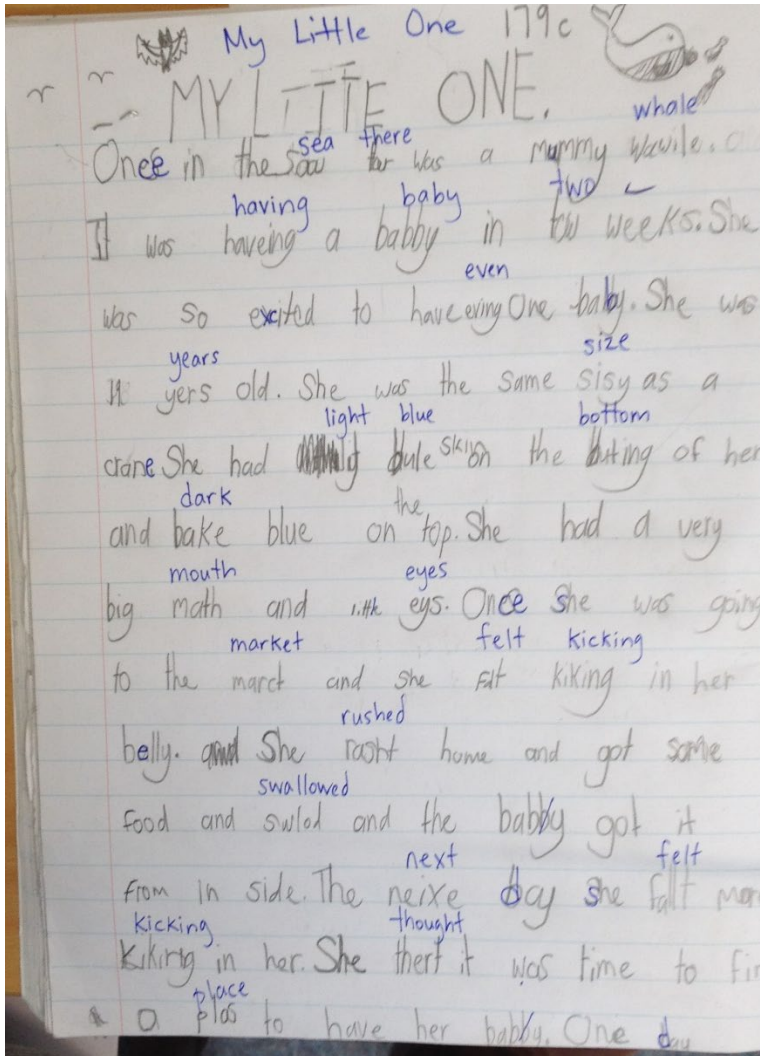 My Little One 179c
MY LITTE ONE.
whale
sea there
Once in the saw thr was a mummy wawile.
having baby two
It was haveing a babby in tow weeks. She
even
was so excited to have ering One baby. She was
years size
11 yers old. She was the same sisy as a
light blue bottom
crane She had bule skin on the buting of her
dark the
and bake blue on top. She had a very
mouth eyes
big math and little eys. Once she was going
market felt kicking
to the marct and she felt kiking in her
rushed
belly. She rasht home and got some
swallowed
food and swlod and the babby got it
next felt
from in side. The neixe day she fallt more
kicking thought
kiking in her. She thert it was time to
place
a plas to have her babby. One day